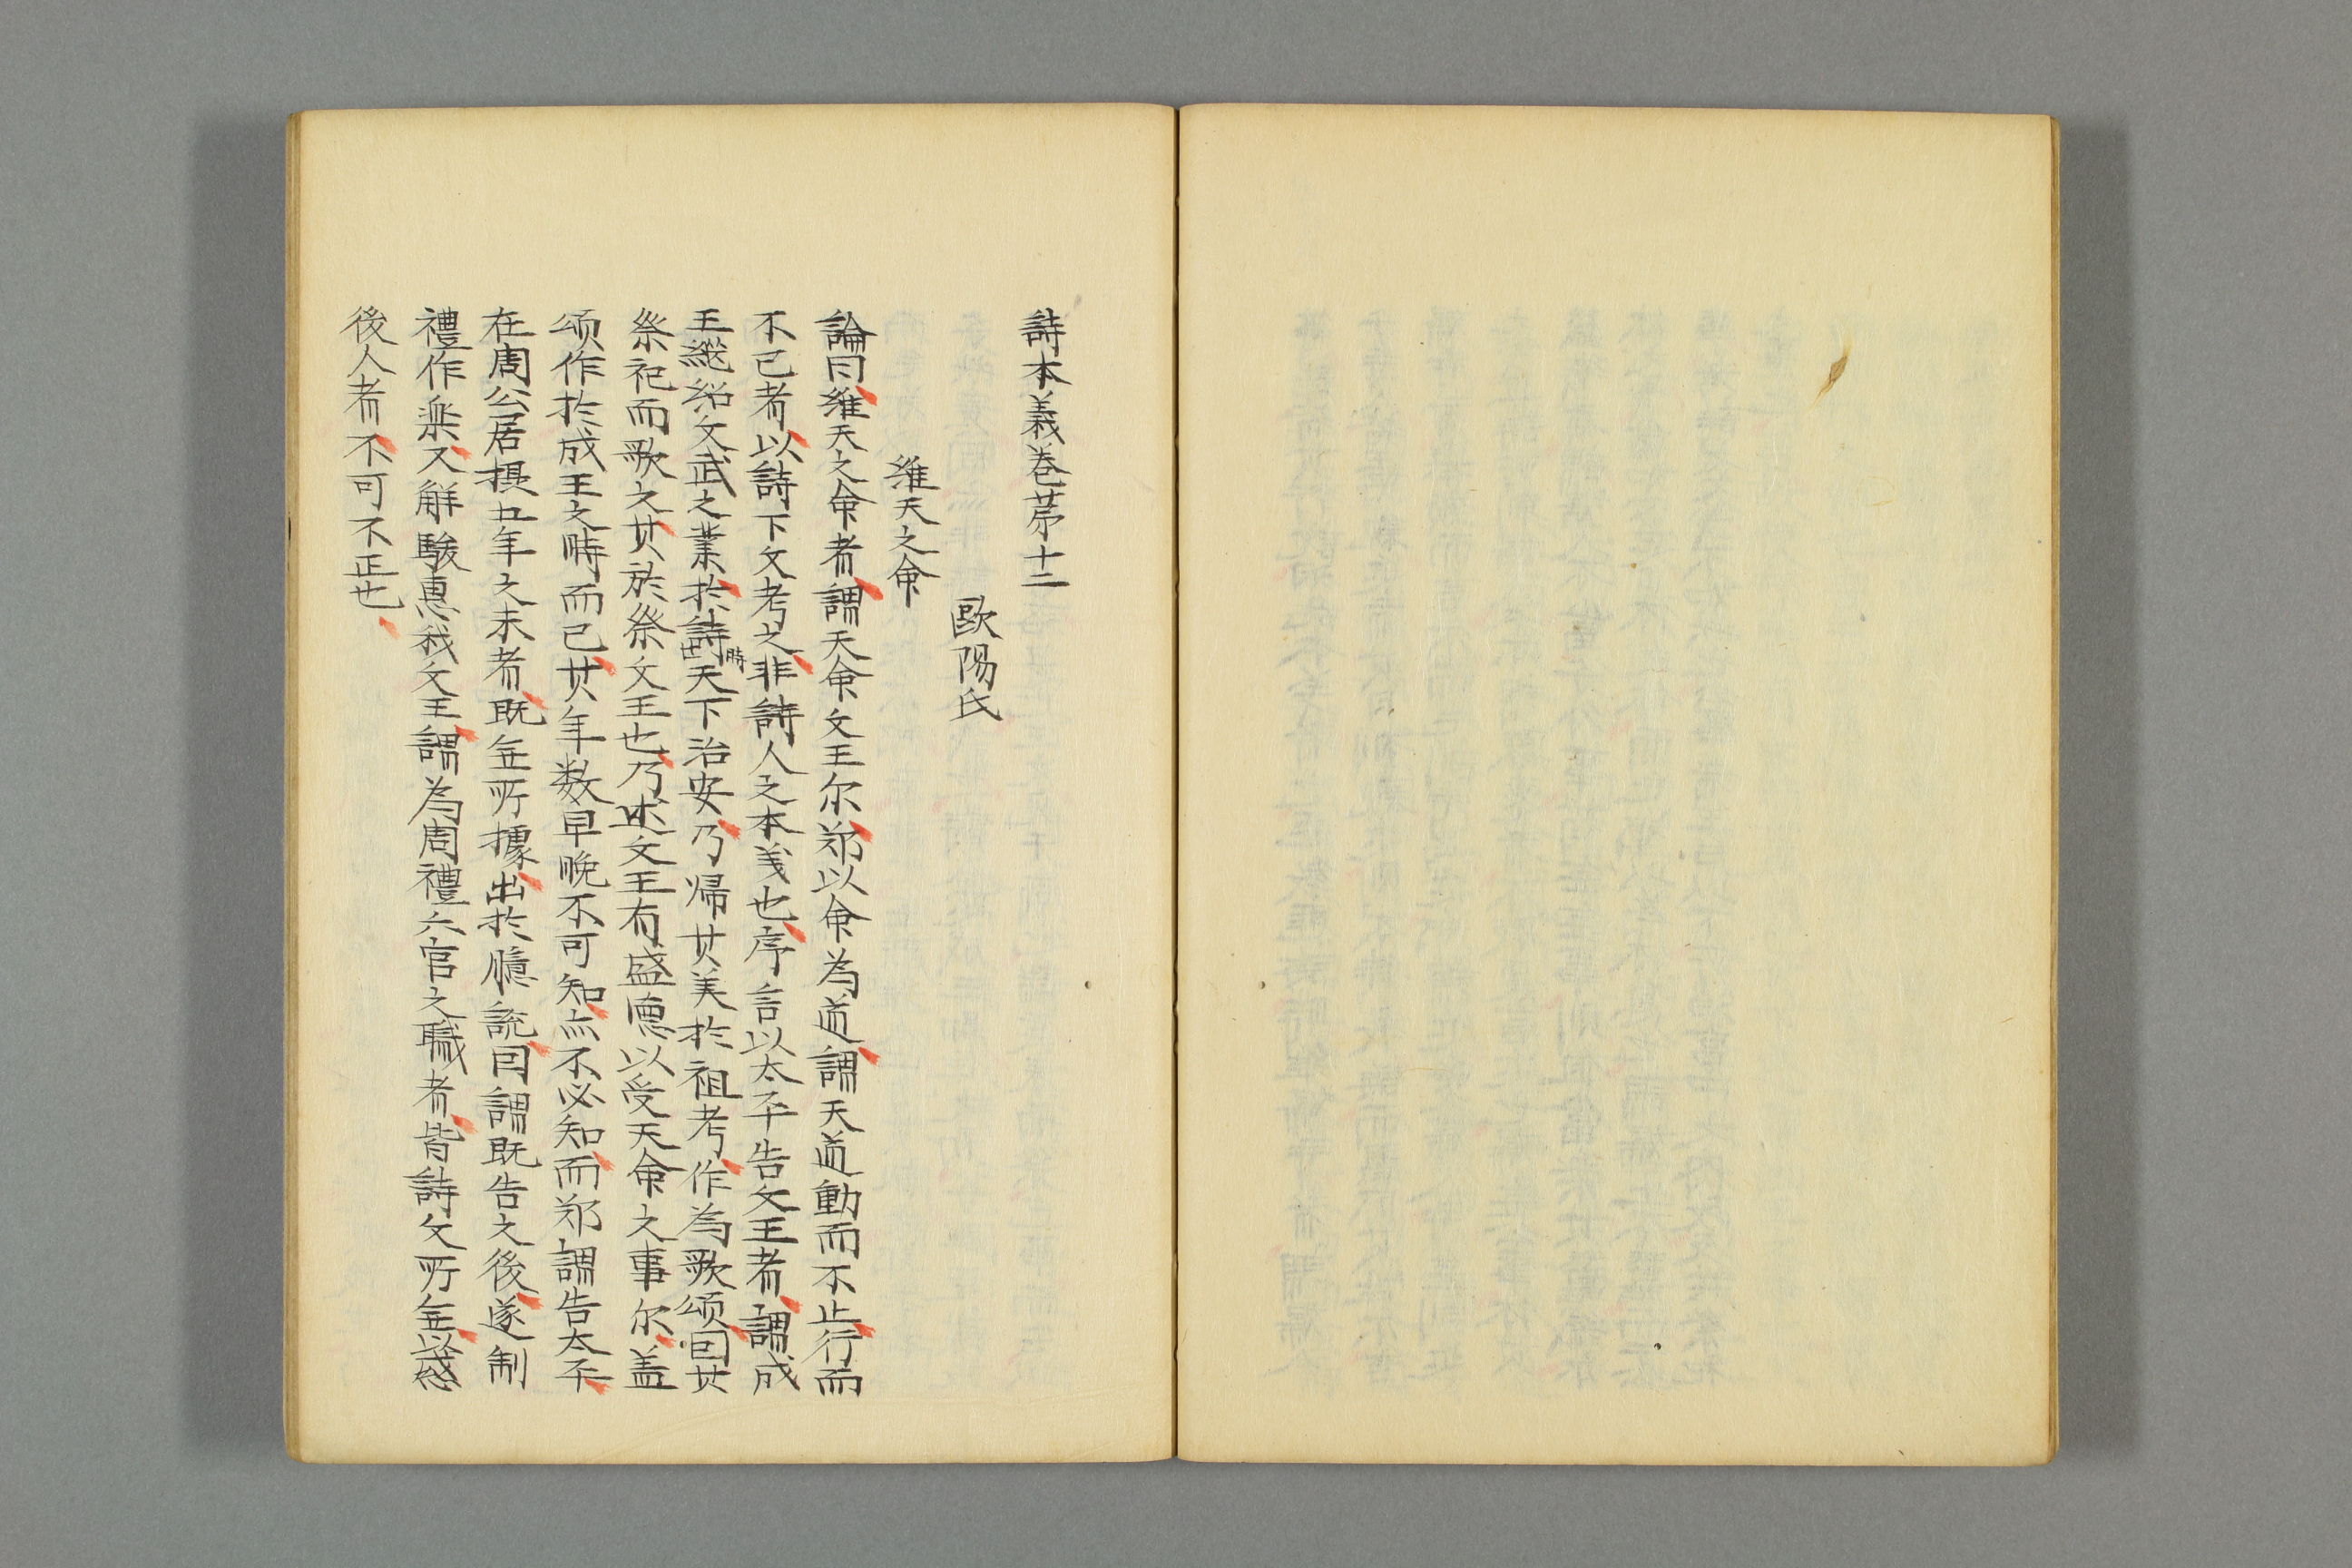 詩本義巻苐十二
歐陽氏
維天之命
論曰維天之命者謂天命文王尔郑以命為道謂天道動而不止行而
不已者以詩下文考之非詩人之本义也序言以太平告文王者謂成
王継紹文武之業於詩時天下治安乃帰其美於祖考作為歌颂因其
祭祀而歌之其於祭文王也乃述文王有盛德以受天命之事尔盖
颂作於成王之時而已其年数早晩不可知亦不必知而郑謂告太平
在周公居摂五年之末者既無所據出於臆説因謂既告之後遂制
禮作楽又解駿惠我文王謂為周禮六官之職者皆詩文所無以惑
後人者不可不正也